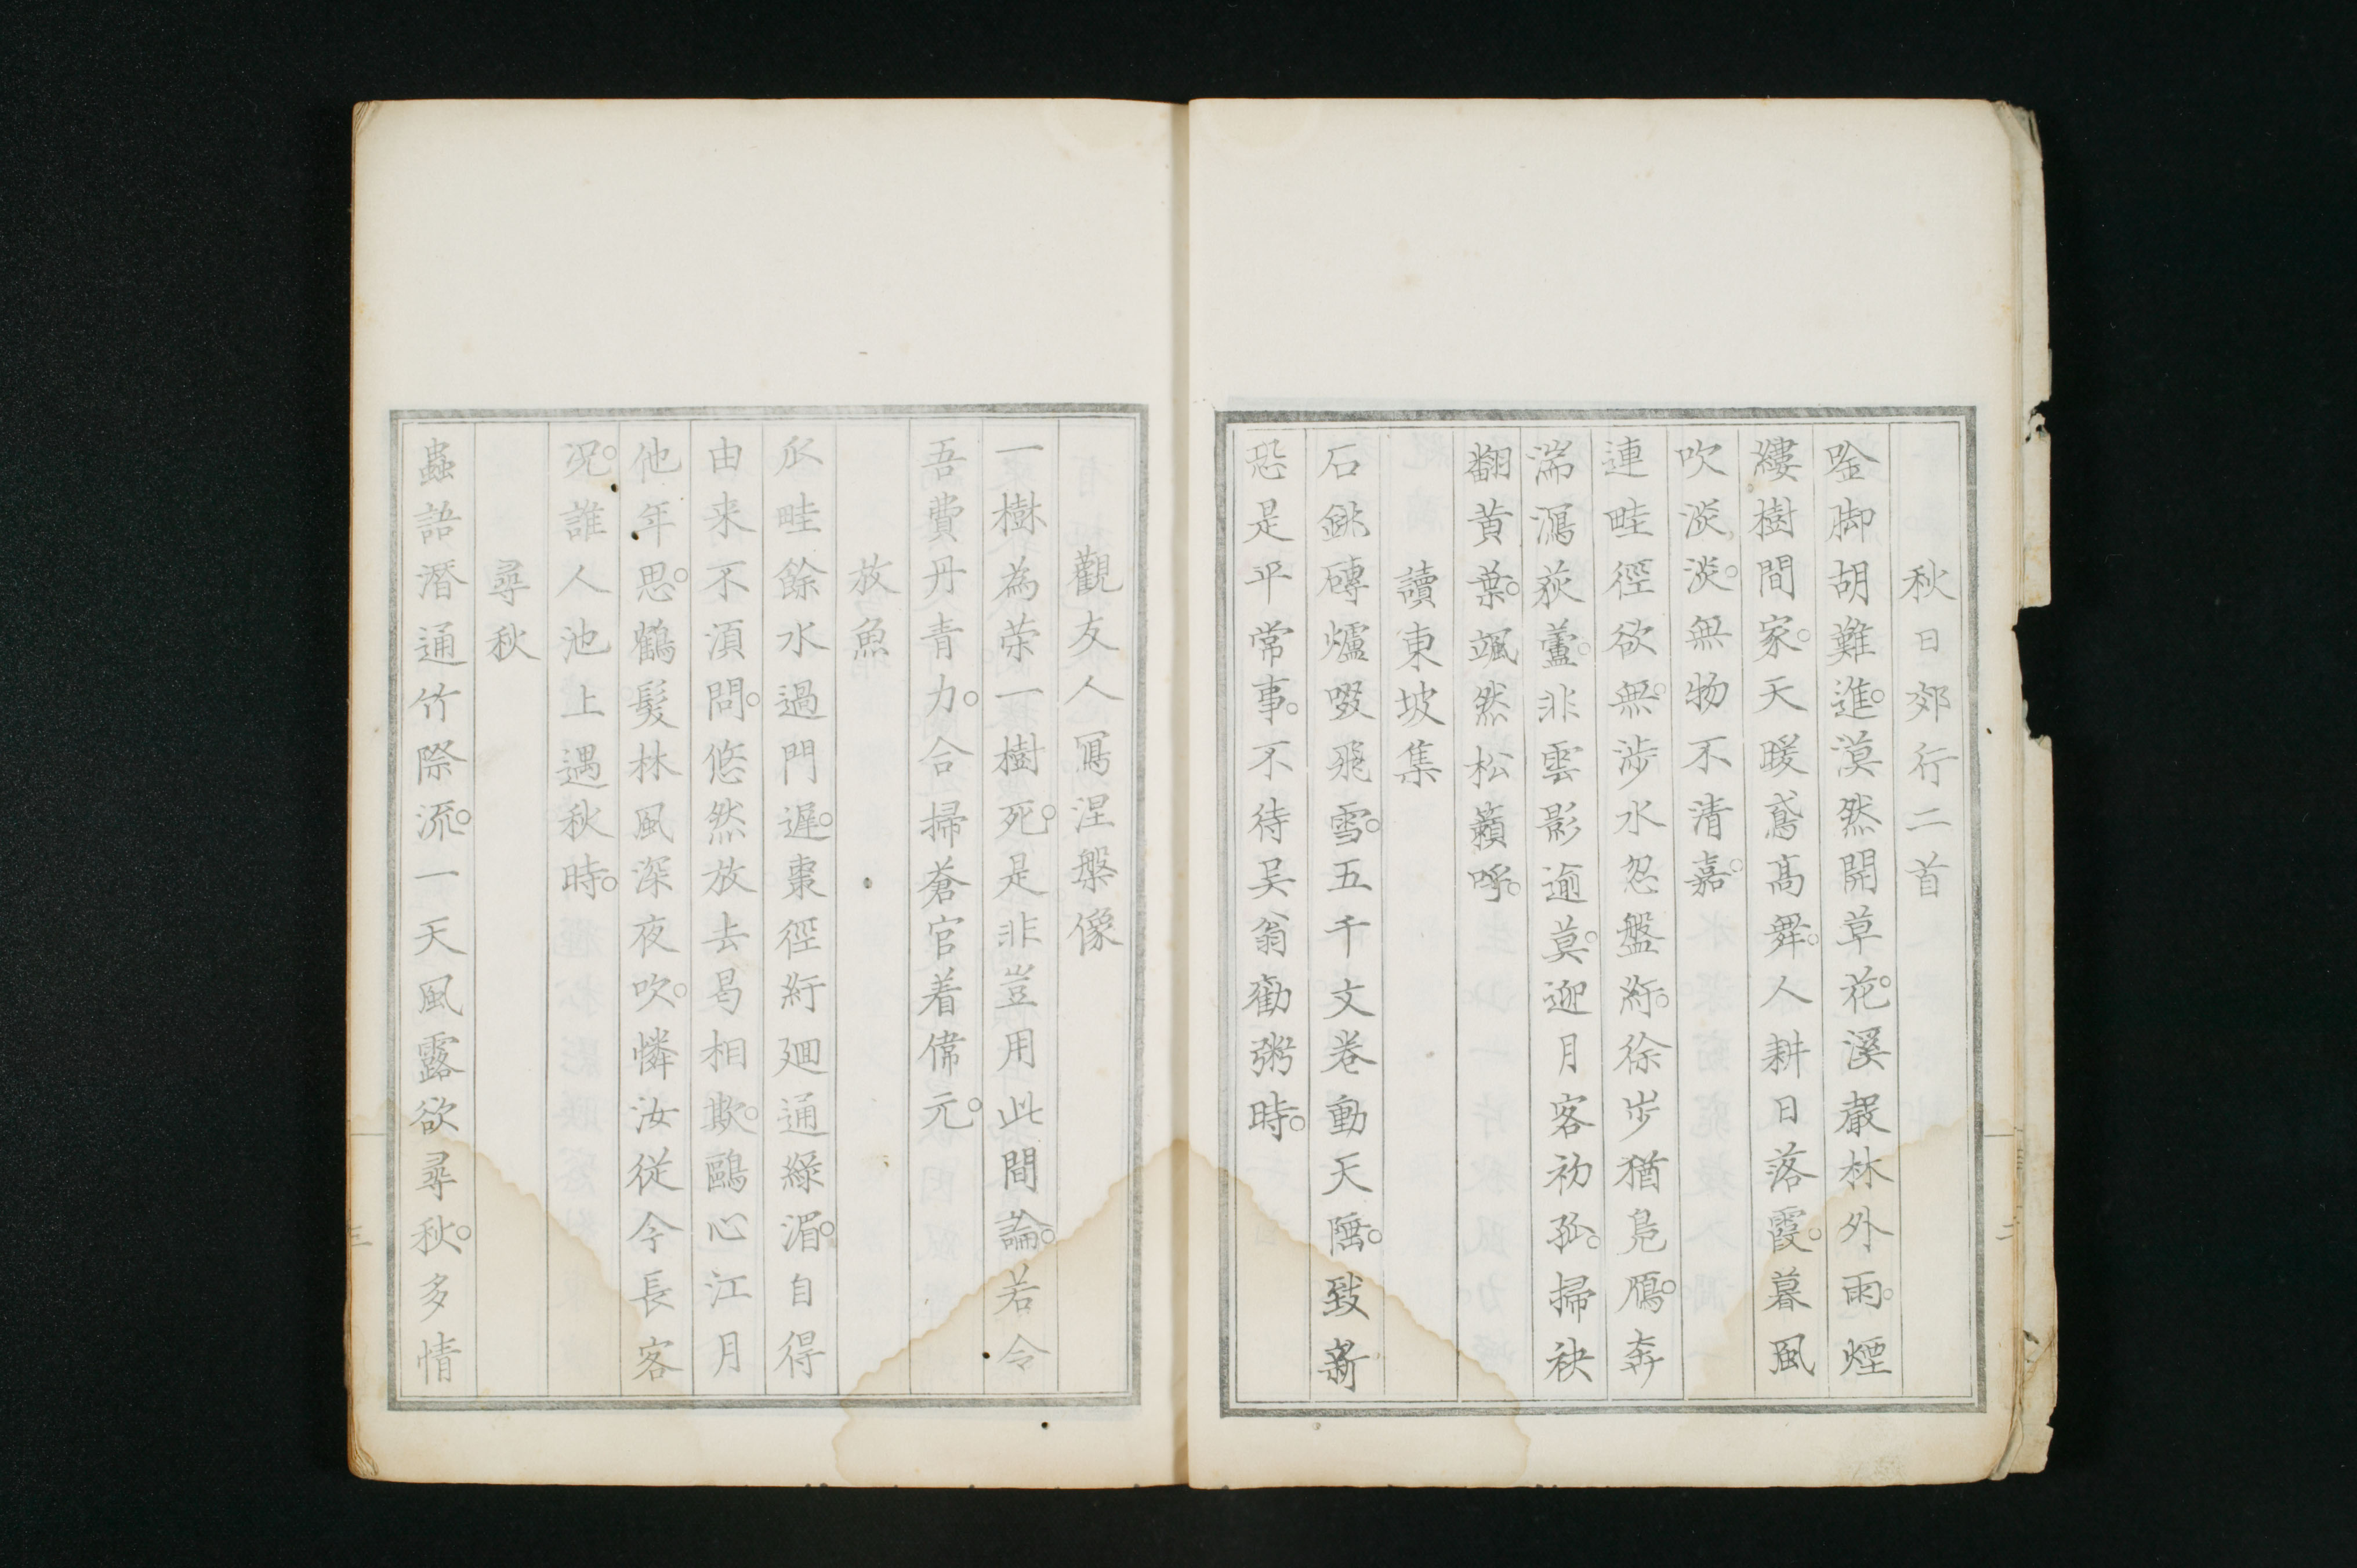 秋日郊行二首
唫脚胡難進。漠然開草花。溪聲林外雨。煙
縷樹間家。天暖鳶高舞。人耕日落霞。暮風
吹淡淡。無物不清嘉。
連畦徑欲無。涉水忽盤紆。徐步猶鳧鴈。奔
湍瀉荻蘆。非雲影逾莫。迎月客初孤。掃袂
翻黄葉。颯然松籟呼。
讀東坡集
石銚磚爐啜飛雪。五千文卷動天隅。致嶄
恐是平常事。不待吴翁勸粥時。
二
觀友人寫涅槃像
一樹為荣一樹死。是非豈用此間論。若令
吾費丹青力。合掃蒼官着偉元。
放魚
瓜畦餘水過門遲。棗徑紆廻通綠湄。自得
由来不湏問。悠然放去曷相欺。鷗心江月
他年思。鶴髪林風深夜吹。憐汝従今長客
况。誰人池上遇秋時。
尋秋
蟲語潛通竹際流。一天風露欲尋秋。多情
三